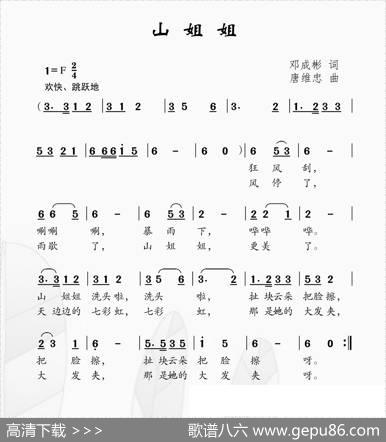 山 姐 姐
1=F 2/4
邓成彬 词
欢快、跳跃地
唐维忠 曲
(3. 3 1 2 | 3 1 2 | 3 5 6 | 3. 2 | 1. 2 3 3 |
5 3 2 1 | 6 6 6 i 5 | 6 - | 6 0) | 6 5 3 | 6 - |
狂 风 刮,
风 停 了,
6 6 5 | 6 - | 6 5 3 | 2 - | 2 2 1 | 2 - |
唰 唰 唰, 暴 雨 下, 哗 哗 哗。
雨 歇 了, 山 姐 姐, 更 美 了。
3. 3 3 1 | 3 1 2 | 3 5 6 | 3. 2 | 1. 2 3 3 | 5 3 5 |
山 姐姐 洗头 啦, 洗头 啦, 扯 块云朵 把脸擦,
天 边边的 七彩 虹, 七彩 虹, 那 是她的 大发夹,
2 3 1 | 6 - | 5. 5 3 5 | i 5 | 6 - | 6 0 :||
把 脸 擦, 扯 块云朵 把 脸 擦 呀。
大 发 夹, 那 是她的 大 发 夹 呀。
高清下载 >>>
歌谱八六 www.gepu86.com